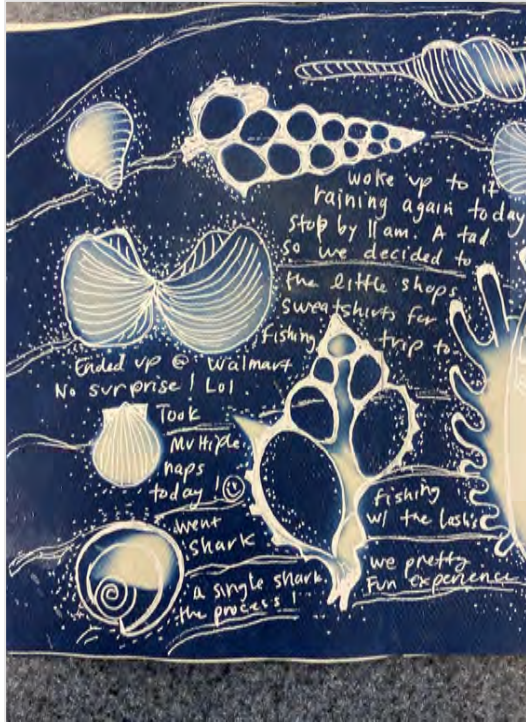 woke up to it
raining again today
stop by 11 am. A tad
so we decided to
the little shops
sweatshirts for
fishing trip to
Ended up @ Walmart
No surprise! Lol
Took
Multiple
naps
today!
went
Shark
fishing
w/ the
a single shark
the process!
we pretty
Fun experience